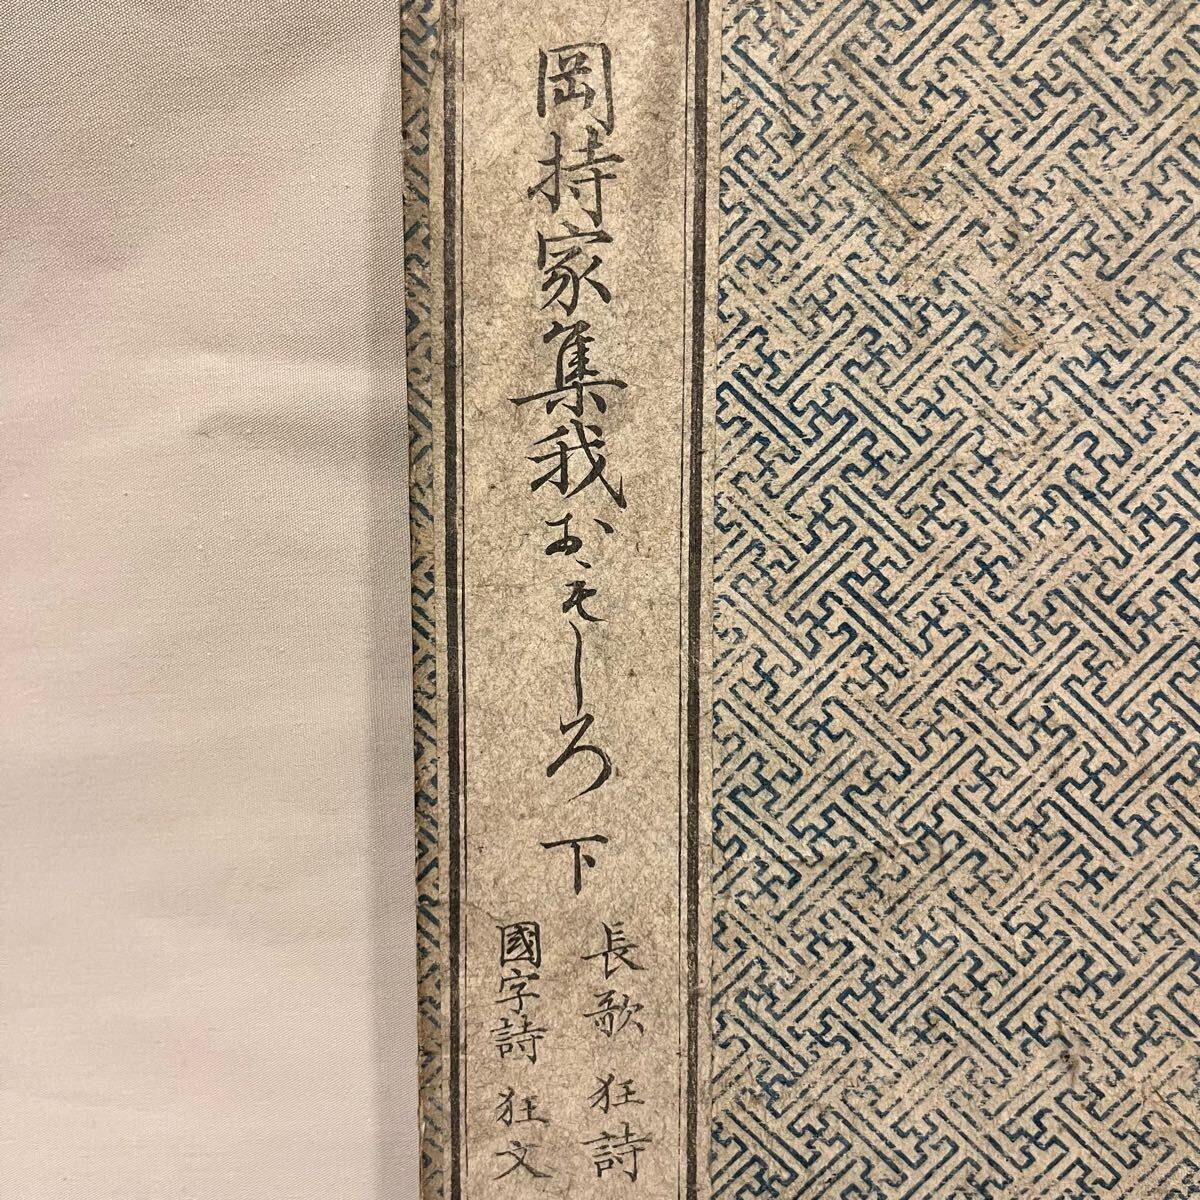 岡持家集我おもしろ 下
長歌 狂詩
國字詩 狂文